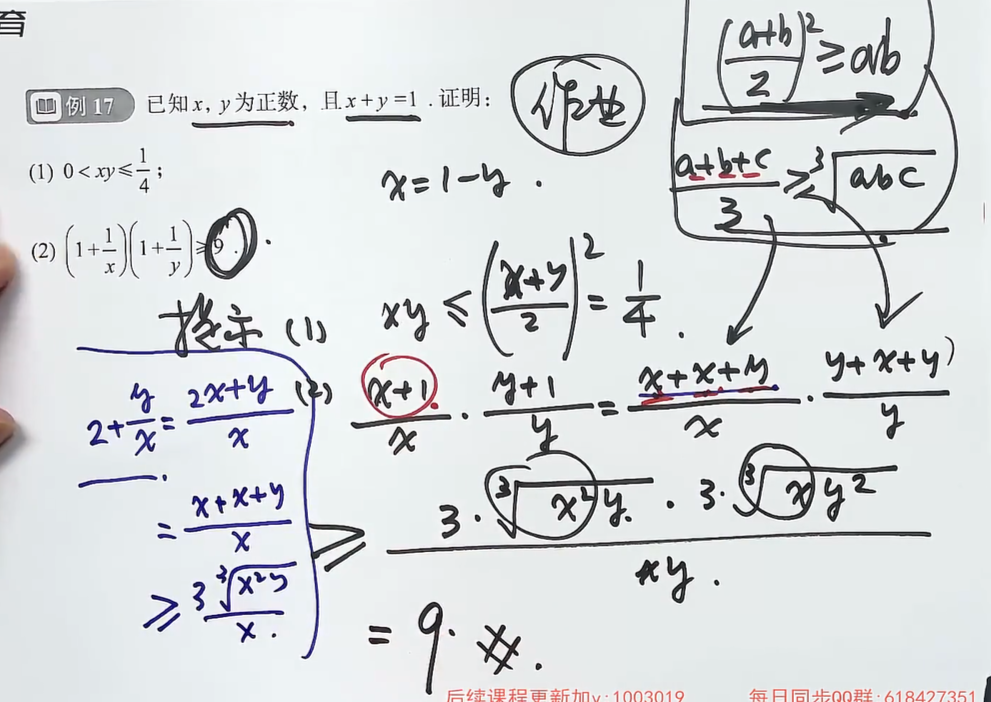 育
例 17 已知 x, y 为正数，且 x+y=1．证明：
(1) 0<xy≤1/4；
(2) (1+1/x)(1+1/y)≥9．
作业
((a+b)/2)²≥ab
(a+b+c)/3≥∛(abc)
x=1-y.
提示 (1) xy≤((x+y)/2)²=1/4.
(2) (x+1)/x·(y+1)/y=(x+x+y)/x·(y+x+y)/y
≥(3·∛(x²y)·3·∛(xy²))/(xy).
=9.#.
2+y/x=(2x+y)/x
=(x+x+y)/x
≥3∛(x²y)/x.
后续课程更新加v:1003019
每日同步QQ群:618427351